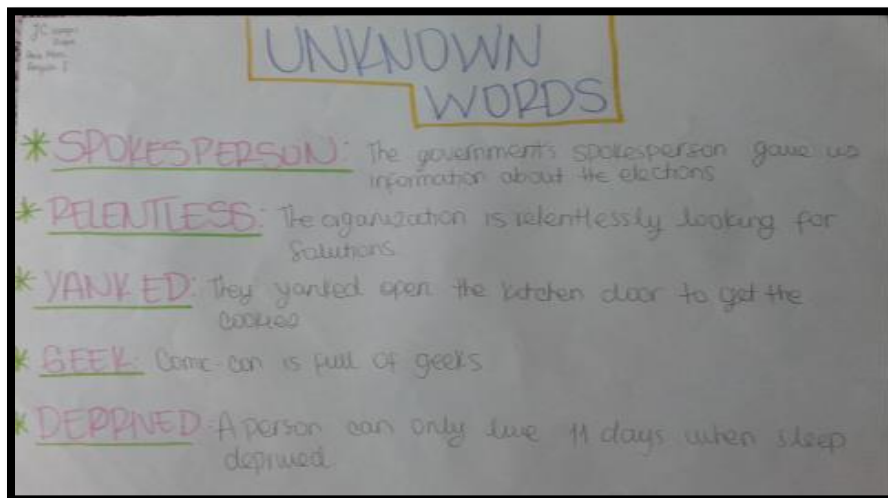 UNKNOWN
WORDS
* SPOKESPERSON: The government's spokesperson gave us
information about the elections
* RELENTLESS: The organization is relentlessly looking for
Solutions
* YANKED: They yanked open the kitchen door to get the
cookies
* GEEK: Comic-con is full of geeks
* DEPRIVED: A person can only live 11 days when sleep
deprived